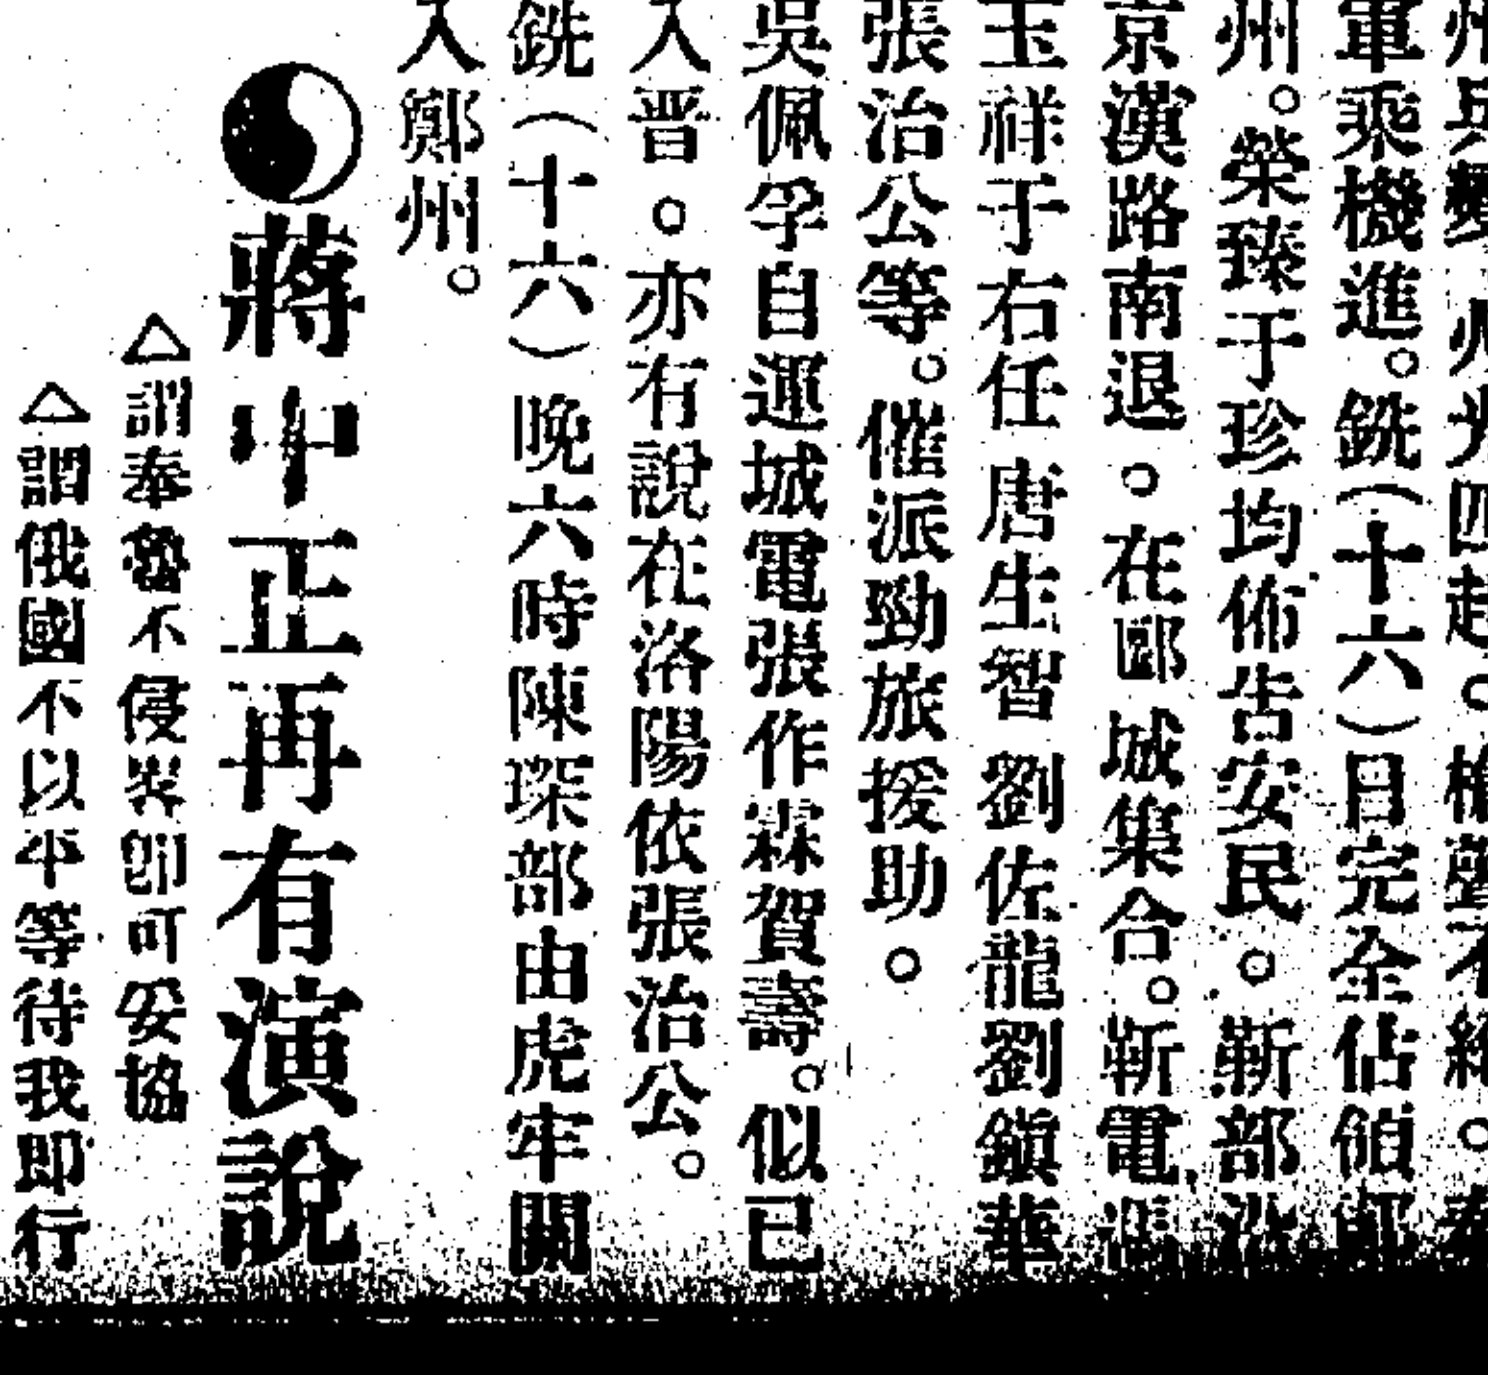 州兵變。火光四起。槍聲不絕。奉
軍乘機進。銑(十六)日完全佔領鄭
州。榮臻于珍均佈告安民。靳部沿
京漢路南退。在郾城集合。靳電馮
玉祥于右任唐生智劉佐龍劉鎭華
張治公等。催派勁旅援助。
吳佩孚自運城電張作霖賀壽。似已
入晋。亦有說在洛陽依張治公。
銑(十六)晚六時陳琛部由虎牢關
入鄭州。
蔣中正再有演說
△謂奉魯不侵畧卽可妥協
△謂俄國不以平等待我即行